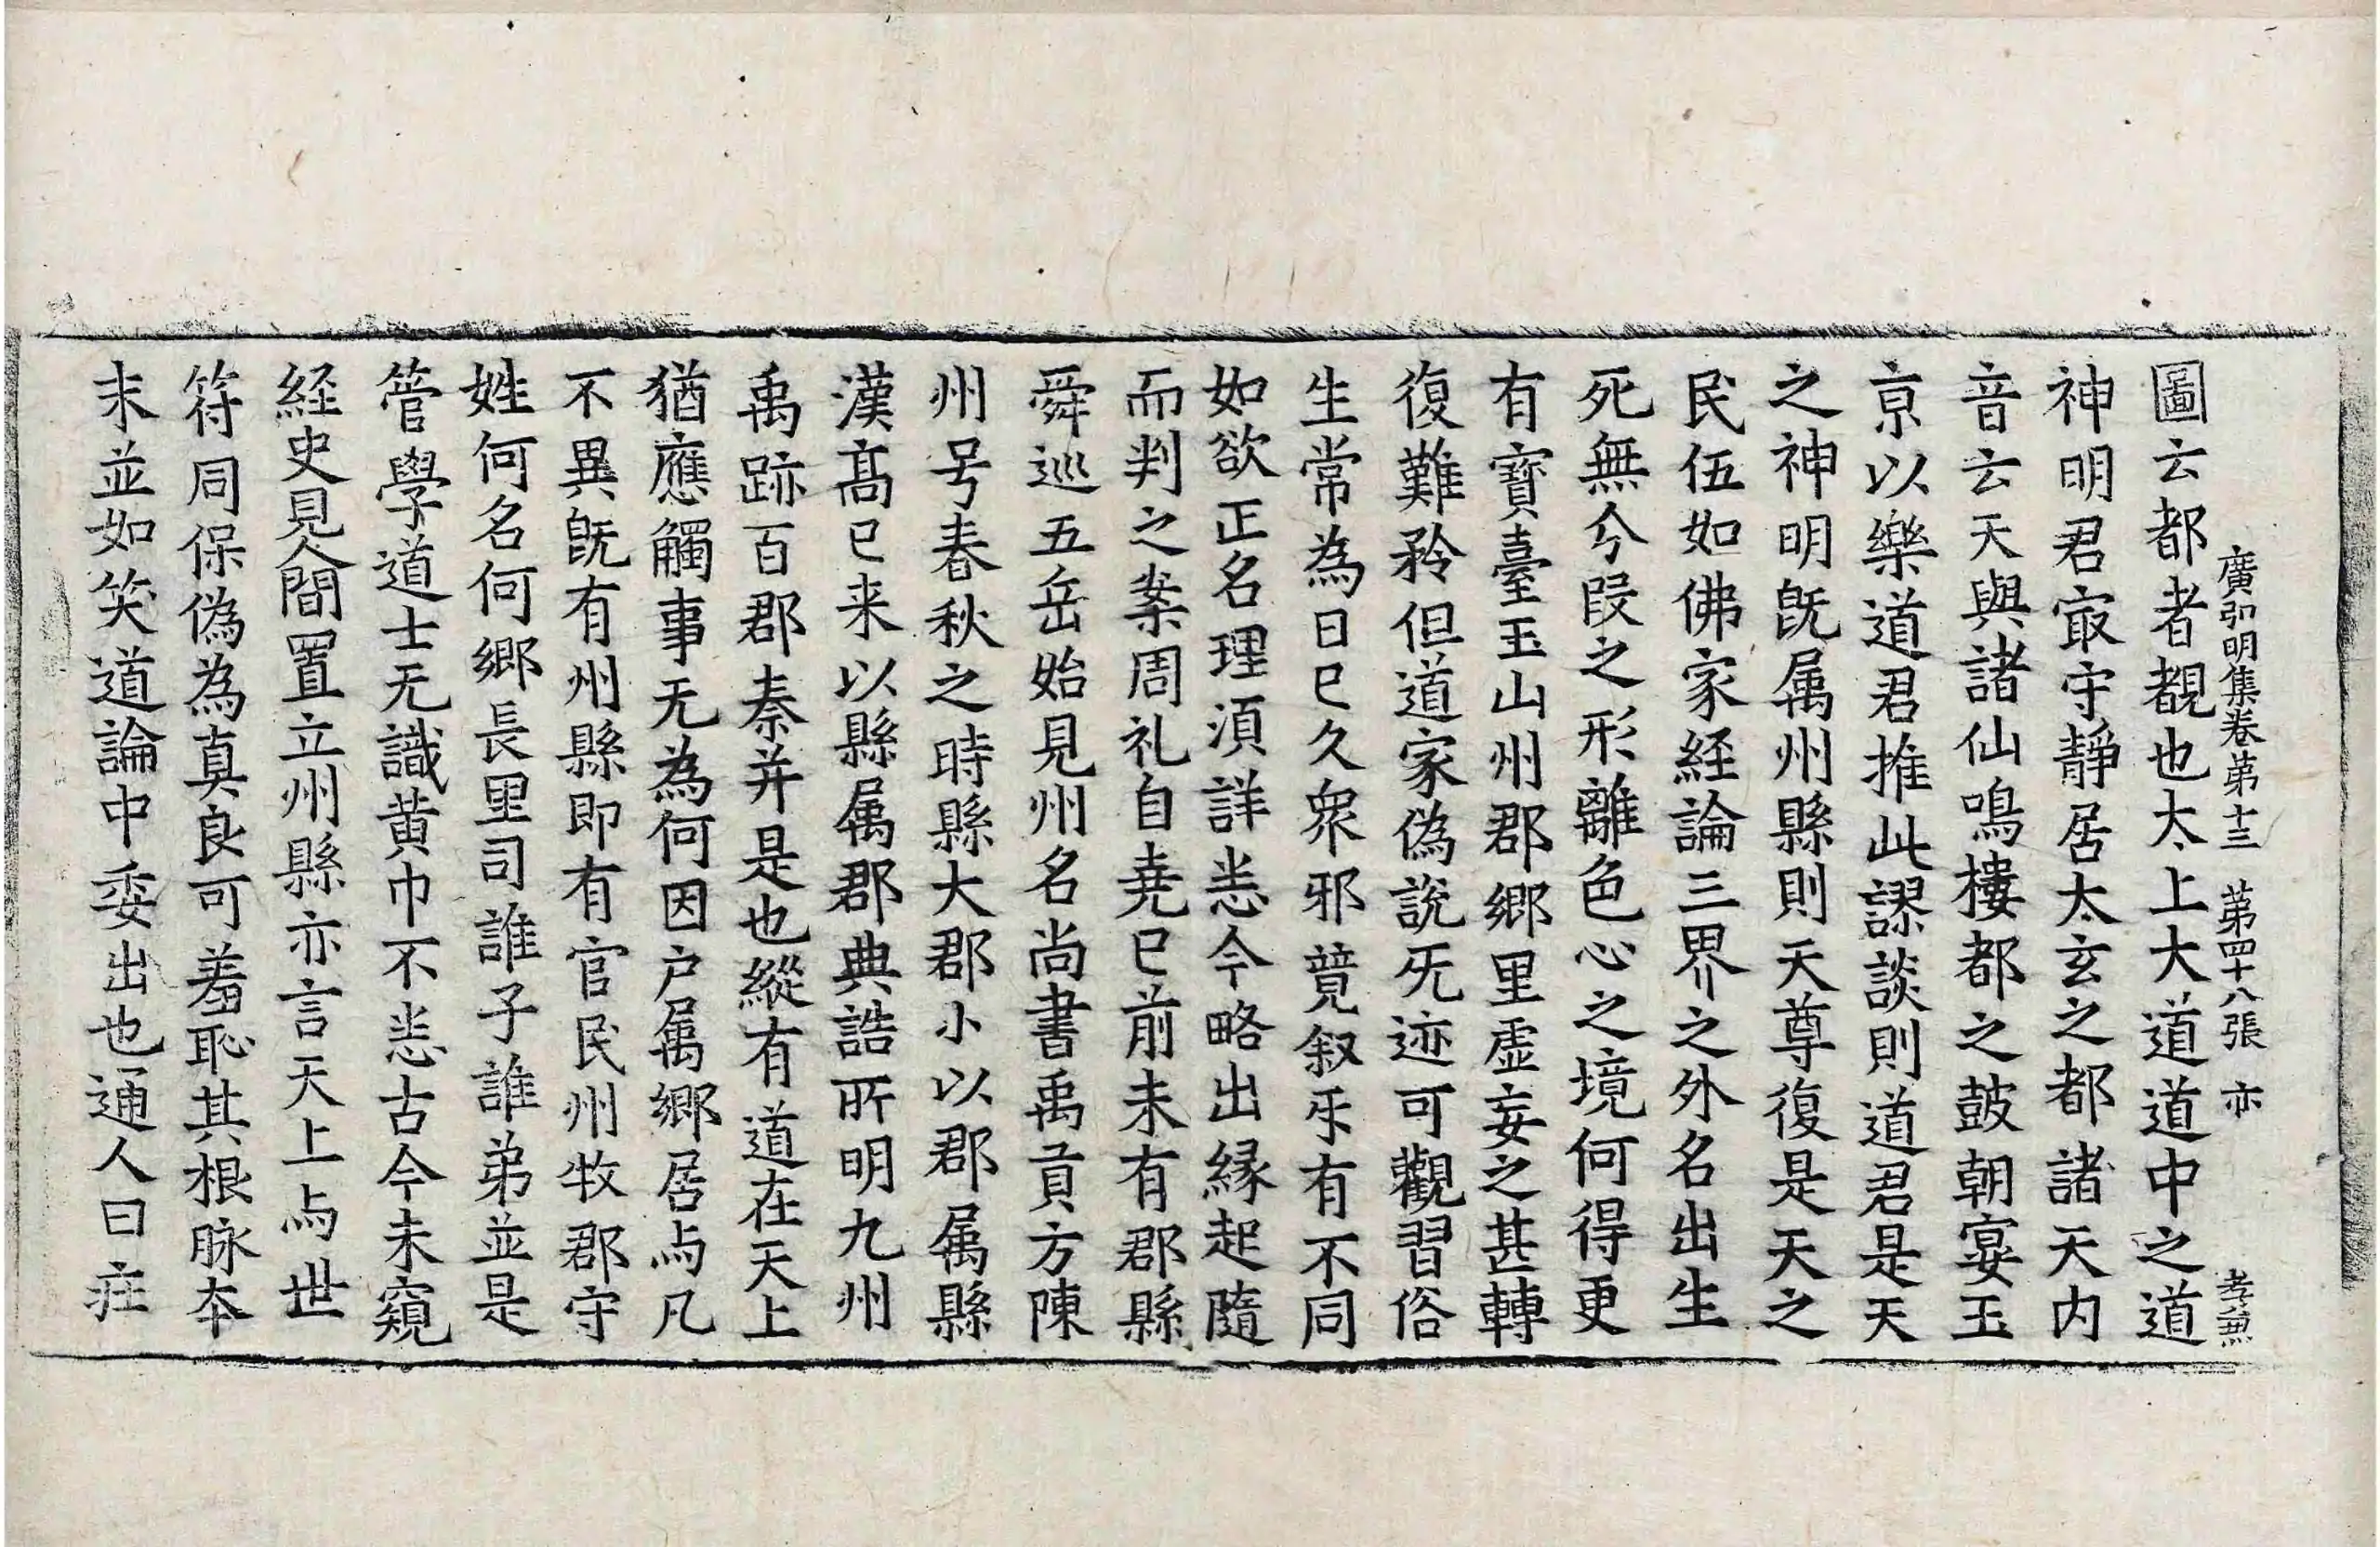 廣弘明集卷第十三 第四十八張 亦 孝兼
圖云都者覩也太上大道道中之道
神明君㝡守靜居太玄之都諸天内
音云天與諸仙鳴樓都之鼓朝宴玉
京以樂道君推此謬談則道君是天
之神明旣属州縣則天尊復是天之
民伍如佛家経論三界之外名出生
死無兮叚之形離色心之境何得更
有寶臺玉山州郡鄉里虛妄之甚轉
復難矜但道家偽說无迹可觀習俗
生常為日巳久衆邪競叙㸦有不同
如欲正名理湏詳悉今略出縁起隨
而判之案周礼自堯巳前未有郡縣
舜巡五岳始見州名尚書禹貢方陳
州号春秋之時縣大郡小以郡属縣
漢髙巳来以縣属郡典誥所明九州
禹跡百郡秦并是也縱有道在天上
猶應觸事无為何因户属鄉居与凡
不異旣有州縣即有官民州牧郡守
姓何名何鄉長里司誰子誰弟並是
管學道士无識黄巾不悉古今未窺
経史見人間置立州縣亦言天上与世
符同保偽為真良可羞恥其根脉夲
末並如笑道論中委出也通人曰㽵